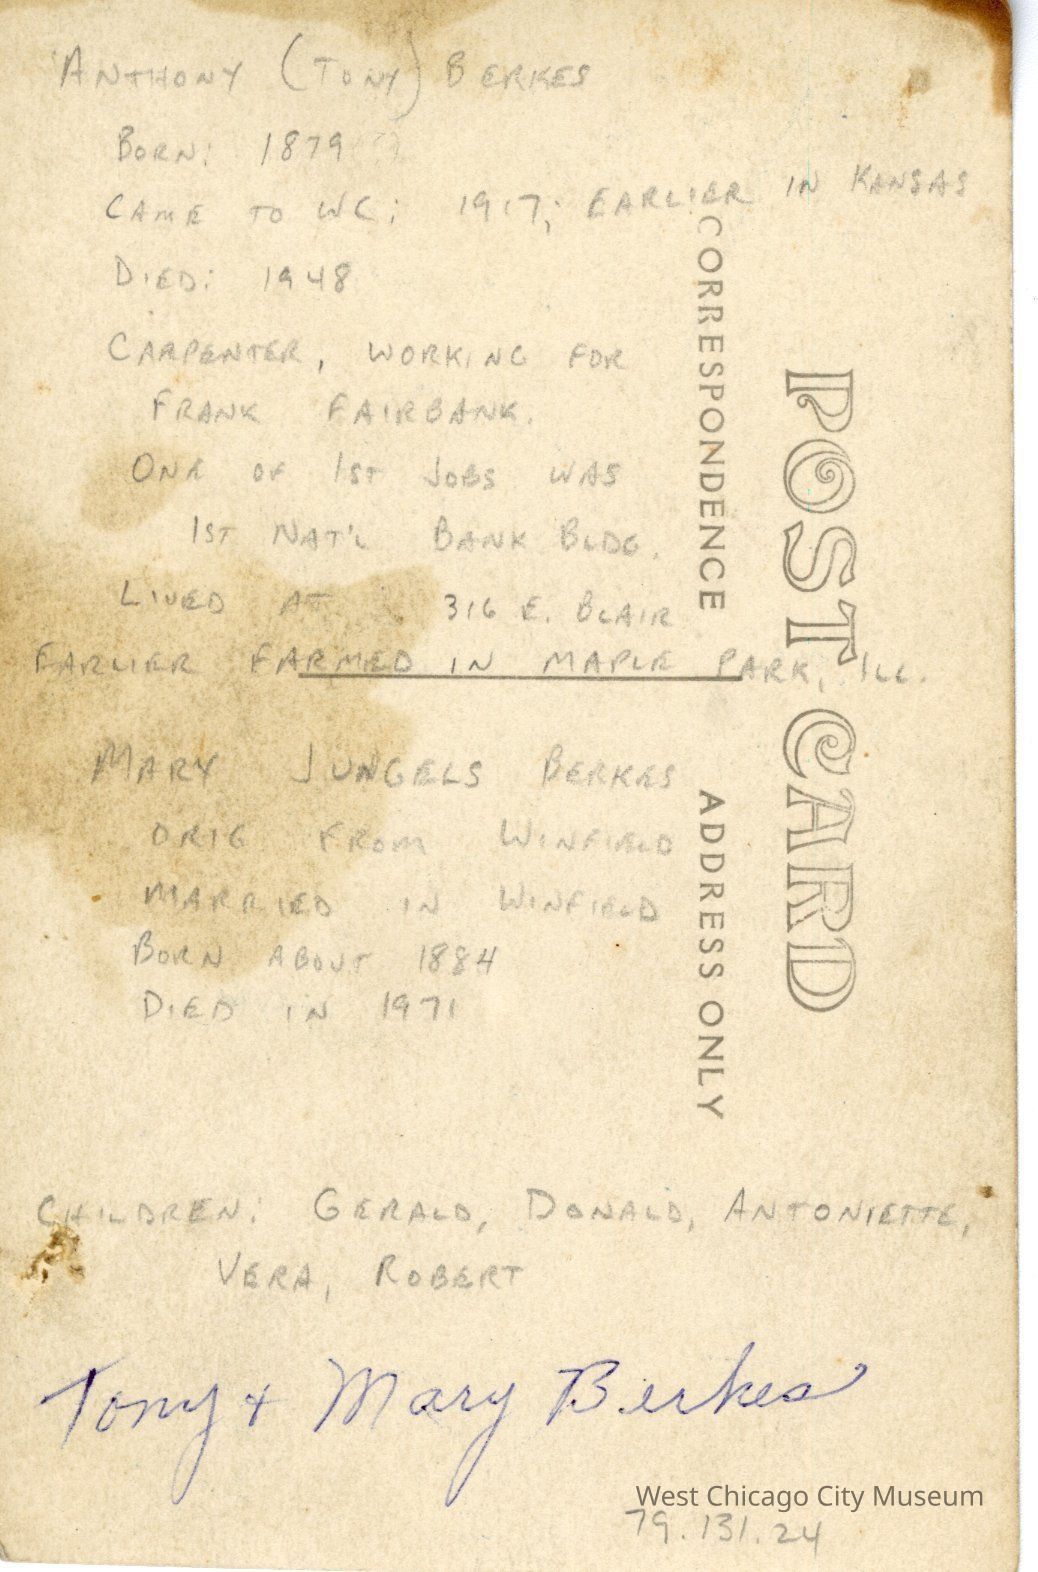 ANTHONY (TONY) BERKES
BORN: 1879
CAME TO WC: 1917; EARLIER IN KANSAS
DIED: 1948
CARPENTER, WORKING FOR
FRANK FAIRBANK.
ONE OF 1ST JOBS WAS
1ST NAT'L BANK BLDG.
LIVED AT 316 E. BLAIR
EARLIER FARMED IN MAPLE PARK, ILL.
MARY JUNGELS BERKES
ORIG FROM WINFIELD
MARRIED IN WINFIELD
BORN ABOUT 1884
DIED IN 1971
CHILDREN: GERALD, DONALD, ANTONIETTE,
VERA, ROBERT
Tony & Mary Berkes
POST CARD
CORRESPONDENCE
ADDRESS ONLY
West Chicago City Museum
79.131.24